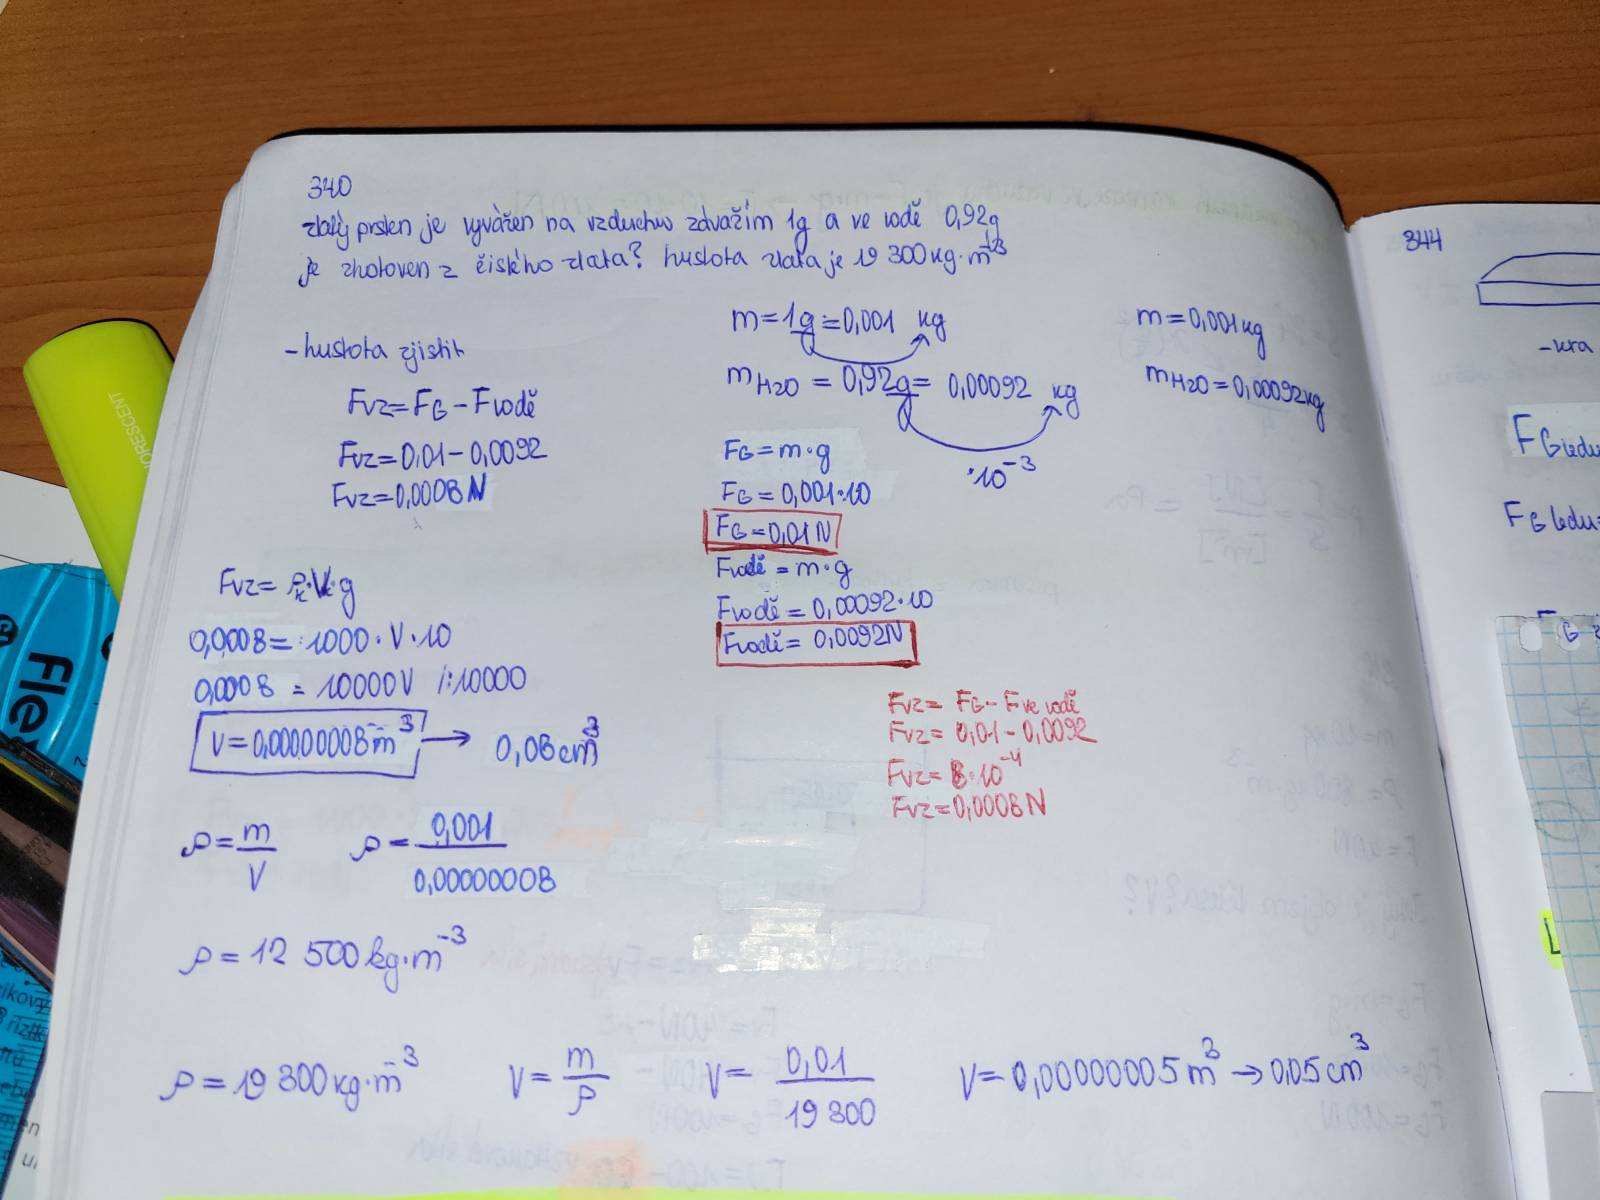 340
zlatý prsten je vyvážen na vzduchu závažím 1g a ve vodě 0,92g
je zhotoven z čistého zlata? hustota zlata je 19 300 kg·m⁻³
-hustota zjistit
Fvz=FG-Fvodě
Fvz=0,01-0,0092
Fvz=0,0008N
m=1g=0,001 kg
mH2O=0,92g=0,00092 kg
·10⁻³
m=0,001kg
mH2O=0,00092kg
FG=m·g
FG=0,001·10
FG=0,01N
Fvodě=m·g
Fvodě=0,00092·10
Fvodě=0,0092N
Fvz=ρk·Vk·g
0,0008=1000·V·10
0,0008=10000V /:10000
V=0,00000008m³→0,08cm³
Fvz=FG-Fve vodě
Fvz=0,01-0,0092
Fvz=8·10⁻⁴
Fvz=0,0008N
ρ=m/V ρ=0,001/0,00000008
ρ=12 500kg·m⁻³
ρ=19 300kg·m⁻³ V=m/ρ V=0,01/19 300 V=0,00000005m³→0,05cm³
344
-kra
FGledu
FGledu=
FG
L
ORESCENT
Fle